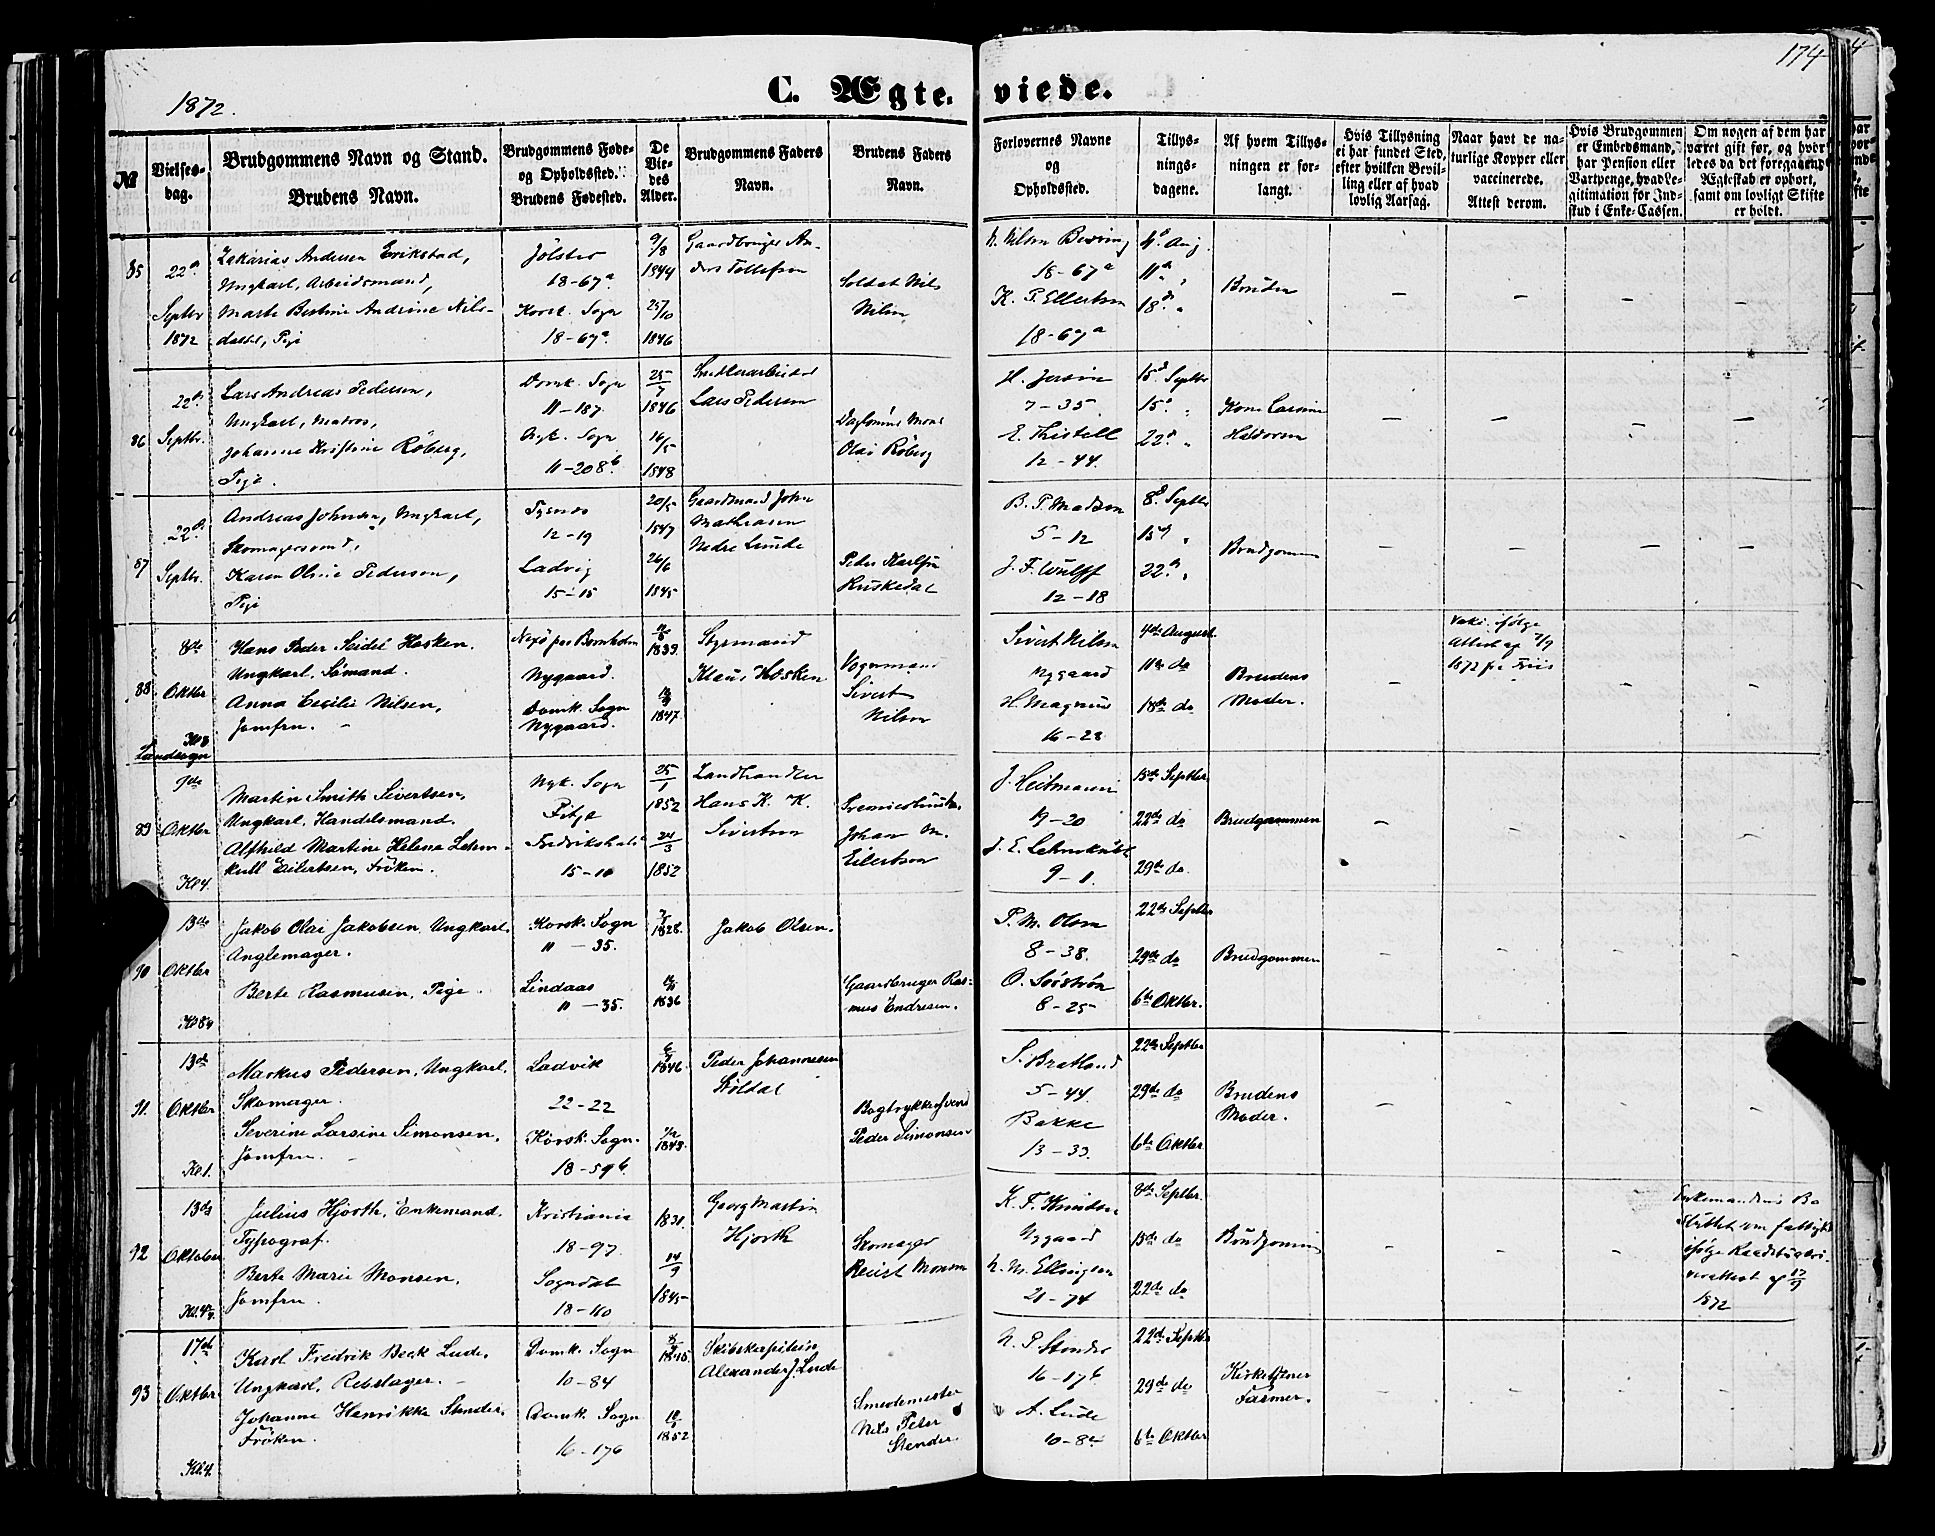 1872.
C. Ægte-
viede.
174
№
Vielses-
dag.
Brudgommens Navn og Stand.
Brudens Navn.
Brudgommens Føde-
og Opholdssted.
Brudens Fødested.
De
Vie-
des
Alder.
Brudgommens Faders
Navn.
Brudens Faders
Navn.
Forlovernes Navne
og
Opholdssted.
Tillys-
nings-
dagene.
Af hvem Tillys-
ningen er for-
langt.
Hvis Tillysning
ei har fundet Sted,
efter hvilken Bevil-
ling eller af hvad
lovlig Aarsag.
Naar havt de na-
turlige Kopper eller
vaccinerede.
Attest derom.
Hvis Brudgommen
er Embedsmand,
har Pension eller
Vartpenge, hvad Le-
gitimation for Ind-
skud i Enke-Cassen.
Om nogen af dem har
været gift før, og hvor-
ledes da det foregaaende
Ægteskab er ophørt,
samt om lovligt Skifte
er holdt.
85
22d
Septbr
1872
Zakarias Andersen Erikstad,
Ungkarl, Arbeidsmand,
Marte Bertine Andrine Nils-
datter, Pige
Jølster
18-67a
Korsk. Sogn
18-67a
9/8
1844
25/10
1846
Gaardbruger An-
ders Tollefsen
Soldat Nils
Nilsen
18-67a
K. P. Ellertsen
18-67a
4d Aug
11d "
18d "
Bruden
86
22d
Septbr.
Lars Andreas Pedersen,
Ungkarl, Matros,
Johanne Kristine Röberg,
Pige.
Domk. Sogn
11-187
Nyk. Sogn
11-208b
25/7
1846
16/5
1848
Lars Pedersen
Olai Röberg
7-35
12-44.
15d Septbr
15d "
22d "
87
22d
Septbr.
Andreas Johnsen, Ungkarl,
Skomagersvend,
Karen Oline Pedersen,
Pige
Tysnes
12-19
Ladvig
15-15
20/5
1847
26/6
1845
Gaardmand John
Mathiasen
Nedre Lunde
Peder Karlsen
Huskedal
B. P. Madsen
5-12
J. F. Wulff
12-18
8d Septbr
15d "
22d "
Brudgommen
88
8de
Oktbr
Kl 8
Hans Peder Seidel Hosken.
Ungkarl, Sømand.
Anna Cecilie Nilsen,
Jomfru. -
Nexö paa Bornholm
Nygaard.
Domk. Sogn
Nygaard.
1839
1847.
Styrmand
Klaus Hosken
Vognmand
Sivert
Nilsen
Sivert Nilsen
Nygaard
H. Magnus
16-28
4de August
11te do
18de do
Brudens
Moder.
Vakc. ifølge
Attest af 7/9
1872 fra Friis
Landsogn
89
9de
Oktbr
Kl 4.
Martin Smith Sivertsen,
Ungkarl, Handelsmand.
Alfhild Martine Helena Lehm-
kull Eilertsen, Fröken.
Nyk. Sogn
Fitje
Fredrikshald
15-10
25/1
1852
24/3
1852
Landhandler
Hans K. K.
Sivertsen
Johan M.
Eilertsen
J. Heitmann
19-20
J. E. Lehmkuhl
9-1.
15de Septbr.
22de do
29de do.
Brudgommen
90
13de
Oktbr
Jakob Olai Jakobsen, Ungkarl,
Anglemager.
Berte Rasmusen, Pige.
Korsk. Sogn
11-35.
Lindaas
11-35.
1828.
1836
Jakob Olsen.
Gaardbruger Ras-
mus Endresen.
P. M. Olsen
8-38.
8-25
22de Septbr
29de do
6te Oktbr.
Brudgommen
91.
13de
Oktbr
Kl 1.
Markus Pedersen, Ungkarl,
Skomager.
Severine Larsine Simonsen,
Jomfru. -
Ladvik
22-22
Korsk. Sogn.
18-59b.
1846.
1843.
Peder Johannesen
Stöldal
Bogtrykkersvend
Peder Simonsen
S. Bratland
5-44
Bakke
13-33
22de Septbr
29de do
6te Oktbr
Brudens
Moder.
92
13de
Oktober
Julius Hjorth, Enkemand.
Typograf.
Berte Marie Monsen,
Jomfru.
Kristiania
18-97.
Sogndal
18-110
1831.
14/9
1845
Georg Martin
Hjorth
Skomager
Monsen
K. F. Knudsen
Nygaard
21-74
8de Septbr.
15de do
22de do
Brudgommen
Enkemandens Bo
sluttet som fattigt
ifølge
af 17/9
1872
93
17de
Oktbr
Kl 4.
Karl Fredrik Beck Lude,
Ungkarl, Rebslager. -
Johanne Henrikke Stender,
Fröken.
Domk. Sogn
10-84
Domk. Sogn
16-176
1845.
1852
Skibskaptein
Alexander J. Lude
Smedemester
Nils Peter
Stender.
N. P. Stender
16-176
A. Lude
10-84
22de Septbr
29de do
6te Oktbr
Kirketjener
Fasmer.